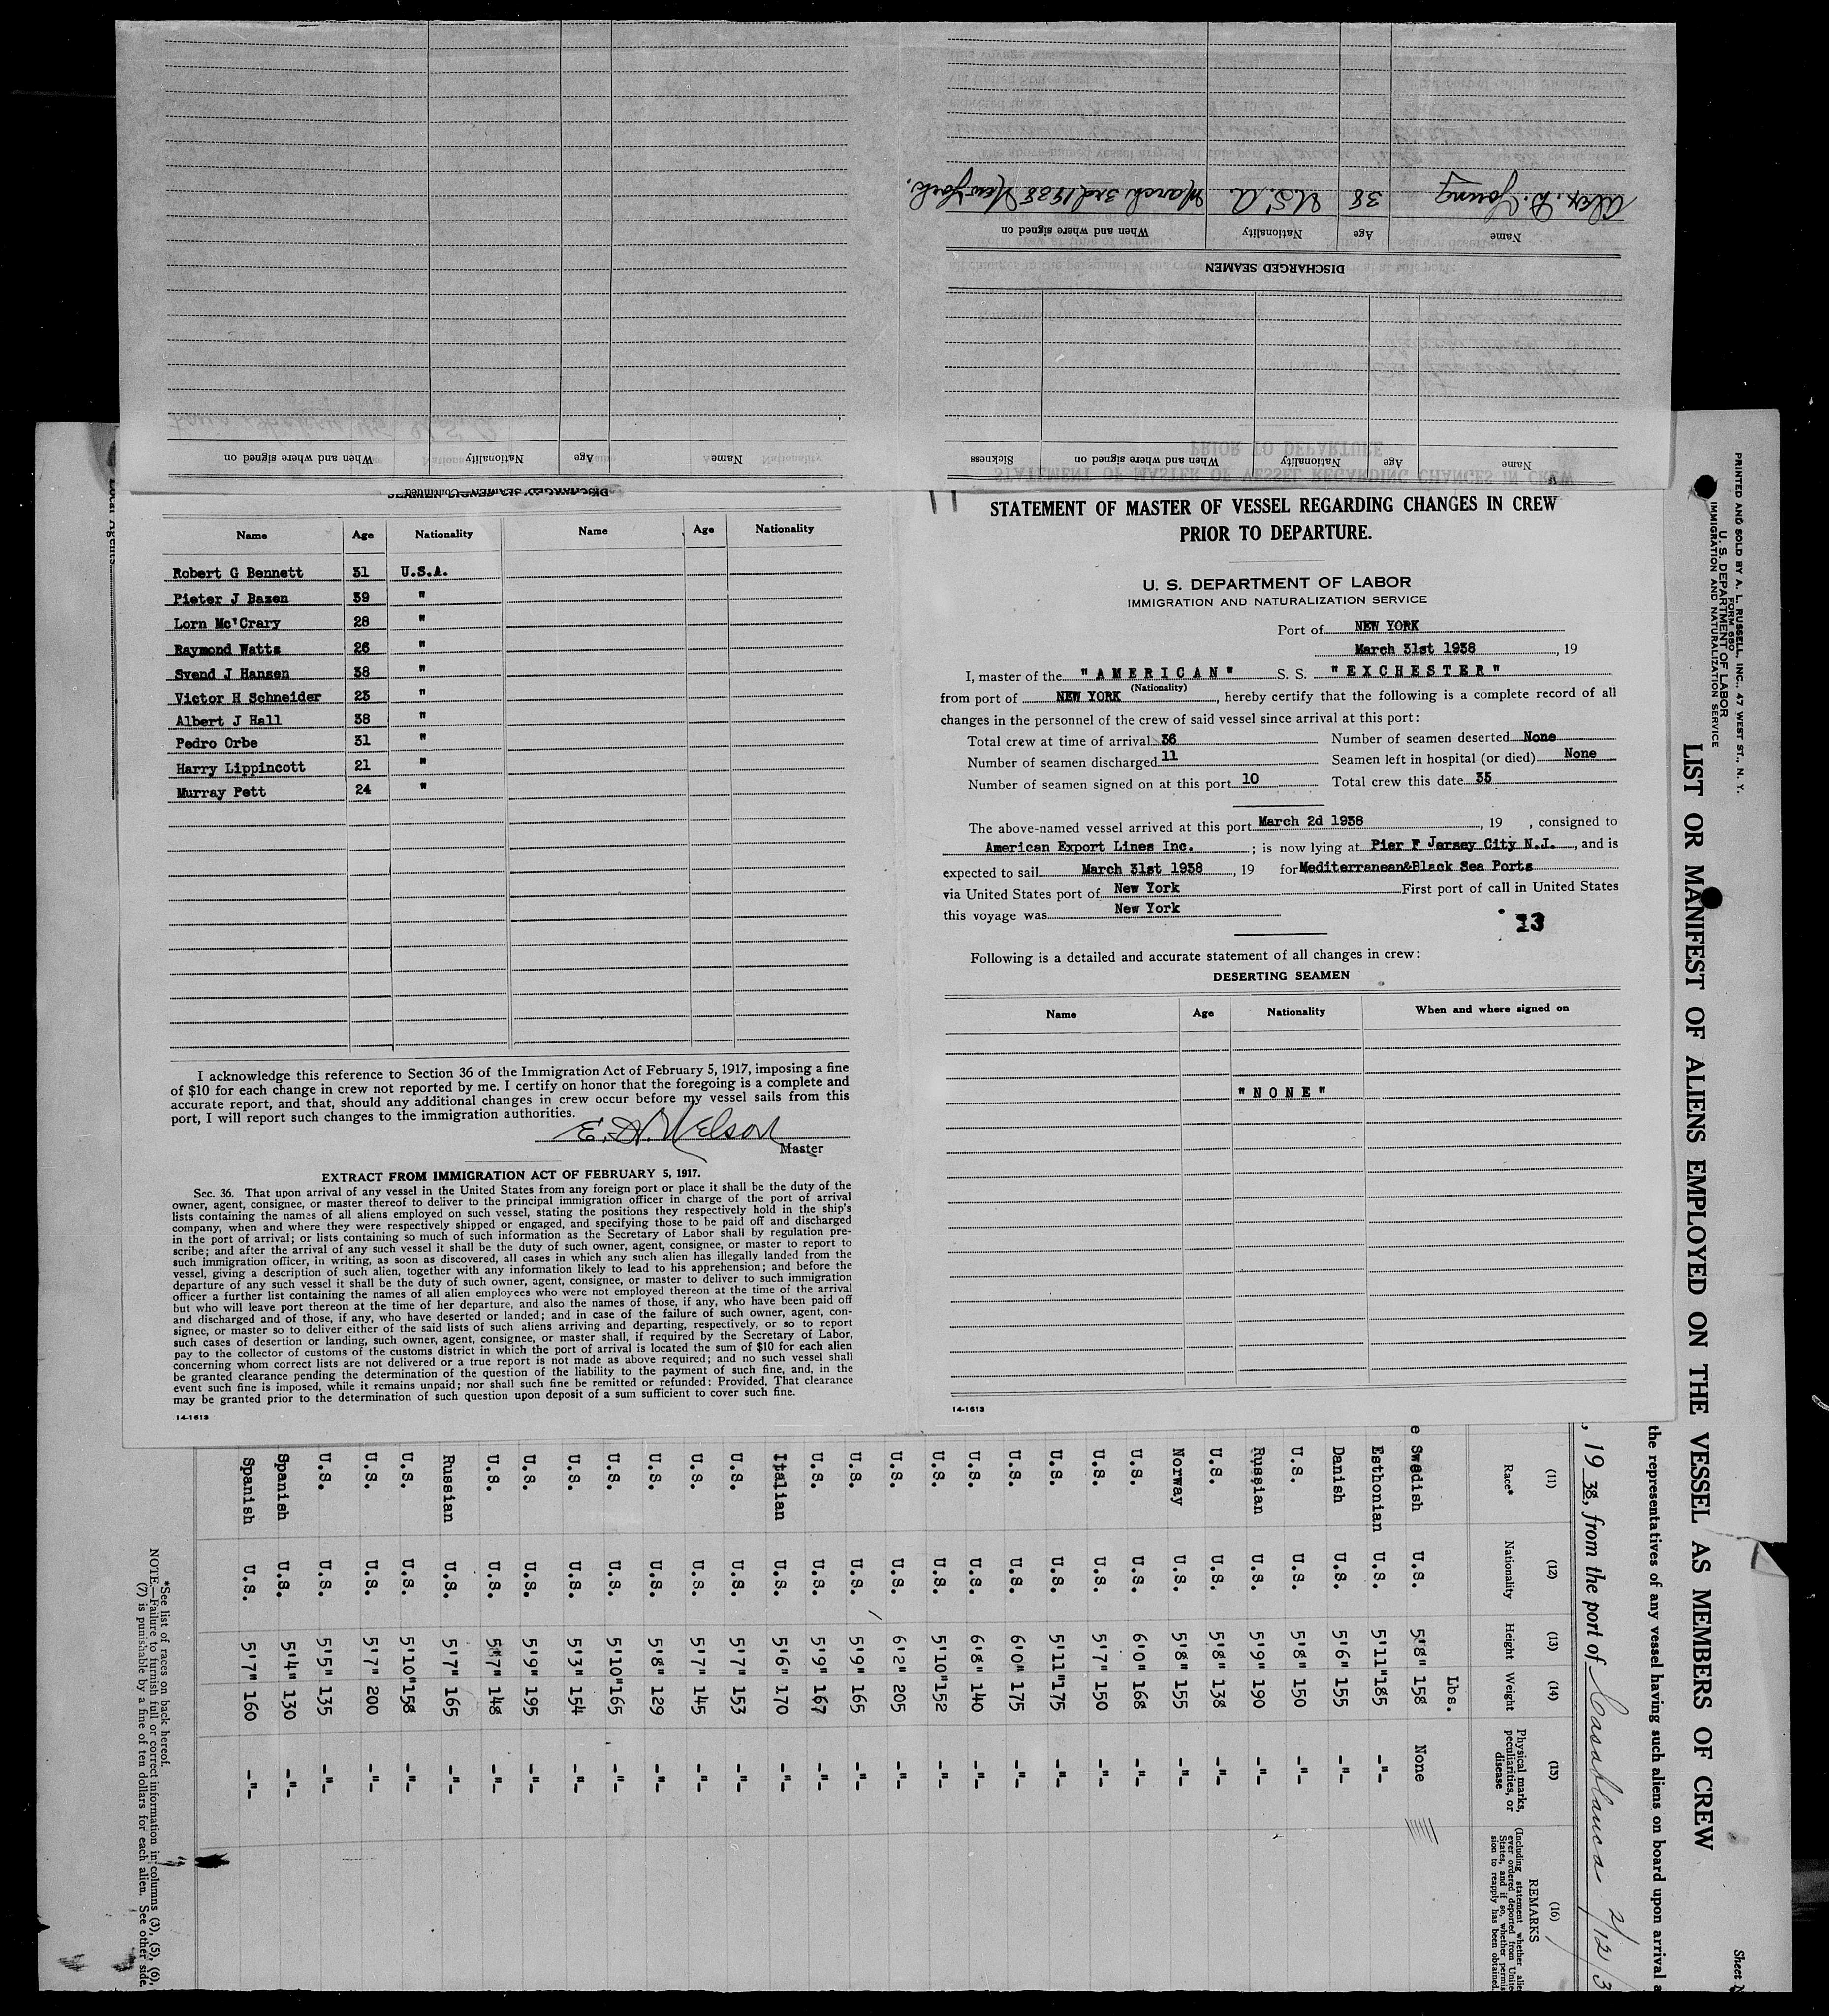 Name Age Nationality When and where signed on
Name Age Nationality When and where signed on Sickness
DISCHARGED SEAMEN
Name Age Nationality When and where signed on
Alex. D. Young 38 U.S.A. March 3rd 1938 New York.
DISCHARGED SEAMEN—Continued
Name Age Nationality Name Age Nationality
Robert G Bennett 31 U.S.A.
Pieter J Bazen 39 "
Lorn Mc'Crary 28 "
Raymond Watts 26 "
Svend J Hansen 38 "
Victor H Schneider 23 "
Albert J Hall 38 "
Pedro Orbe 31 "
Harry Lippincott 21 "
Murray Pett 24 "
I acknowledge this reference to Section 36 of the Immigration Act of February 5, 1917, imposing a fine
of $10 for each change in crew not reported by me. I certify on honor that the foregoing is a complete and
accurate report, and that, should any additional changes in crew occur before my vessel sails from this
port, I will report such changes to the immigration authorities.
E. A. Nelson
Master
EXTRACT FROM IMMIGRATION ACT OF FEBRUARY 5, 1917.
Sec. 36. That upon arrival of any vessel in the United States from any foreign port or place it shall be the duty of the
owner, agent, consignee, or master thereof to deliver to the principal immigration officer in charge of the port of arrival
lists containing the names of all aliens employed on such vessel, stating the positions they respectively hold in the ship's
company, when and where they were respectively shipped or engaged, and specifying those to be paid off and discharged
in the port of arrival; or lists containing so much of such information as the Secretary of Labor shall by regulation pre-
scribe; and after the arrival of any such vessel it shall be the duty of such owner, agent, consignee, or master to report to
such immigration officer, in writing, as soon as discovered, all cases in which any such alien has illegally landed from the
vessel, giving a description of such alien, together with any information likely to lead to his apprehension; and before the
departure of any such vessel it shall be the duty of such owner, agent, consignee, or master to deliver to such immigration
officer a further list containing the names of all alien employees who were not employed thereon at the time of the arrival
but who will leave port thereon at the time of her departure, and also the names of those, if any, who have been paid off
and discharged and of those, if any, who have deserted or landed; and in case of the failure of such owner, agent, con-
signee, or master so to deliver either of the said lists of such aliens arriving and departing, respectively, or so to report
such cases of desertion or landing, such owner, agent, consignee, or master shall, if required by the Secretary of Labor,
pay to the collector of customs of the customs district in which the port of arrival is located the sum of $10 for each alien
concerning whom correct lists are not delivered or a true report is not made as above required; and no such vessel shall
be granted clearance pending the determination of the question of the liability to the payment of such fine, and, in the
event such fine is imposed, while it remains unpaid; nor shall such fine be remitted or refunded: Provided, That clearance
may be granted prior to the determination of such question upon deposit of a sum sufficient to cover such fine.
14-1613
STATEMENT OF MASTER OF VESSEL REGARDING CHANGES IN CREW
PRIOR TO DEPARTURE.
U. S. DEPARTMENT OF LABOR
IMMIGRATION AND NATURALIZATION SERVICE
Port of NEW YORK
March 31st 1938, 19
I, master of the "AMERICAN" S. S. "EXCHESTER"
(Nationality)
from port of NEW YORK, hereby certify that the following is a complete record of all
changes in the personnel of the crew of said vessel since arrival at this port:
Total crew at time of arrival 36 Number of seamen deserted None
Number of seamen discharged 11 Seamen left in hospital (or died) None
Number of seamen signed on at this port 10 Total crew this date 35
The above-named vessel arrived at this port March 2d 1938, 19 , consigned to
American Export Lines Inc. ; is now lying at Pier F Jersey City N.J., and is
expected to sail March 31st 1938, 19 for Mediterranean&Black Sea Ports
via United States port of New York First port of call in United States
this voyage was New York
13
Following is a detailed and accurate statement of all changes in crew:
DESERTING SEAMEN
Name Age Nationality When and where signed on
"NONE"
14-1613
PRINTED AND SOLD BY A. L. RUSSELL, INC., 47 WEST ST., N. Y.
FORM 680
U. S. DEPARTMENT OF LABOR
IMMIGRATION AND NATURALIZATION SERVICE
Sheet N
LIST OR MANIFEST OF ALIENS EMPLOYED ON THE VESSEL AS MEMBERS OF CREW
the representatives of any vessel having such aliens on board upon arrival a
, 1938, from the port of Casablanca 2/12/3
(11) (12) (13) (14) (15) (16)
Race* Nationality Height Weight Physical marks, peculiarities, or disease REMARKS
(Including statement whether alie
ever ordered deported from Unite
States, and if so, whether permis
sion to reapply has been obtained
Lbs.
e Swedish U.S. 5'8" 158 None
Esthonian U.S. 5'11" 185 -"-
Danish U.S. 5'6" 155 -"-
U.S. U.S. 5'8" 150 -"-
Russian U.S. 5'9" 190 -"-
U.S. U.S. 5'8" 138 -"-
Norway U.S. 5'8" 155 -"-
U.S. U.S. 6'0" 168 -"-
U.S. U.S. 5'7" 150 -"-
U.S. U.S. 5'11" 175 -"-
U.S. U.S. 6'0" 175 -"-
U.S. U.S. 6'8" 140 -"-
U.S. U.S. 5'10" 152 -"-
U.S. U.S. 6'2" 205 -"-
U.S. U.S. 5'9" 165 -"-
U.S. U.S. 5'9" 167 -"-
Italian U.S. 5'6" 170 -"-
U.S. U.S. 5'7" 153 -"-
U.S. U.S. 5'7" 145 -"-
U.S. U.S. 5'8" 129 -"-
U.S. U.S. 5'10" 165 -"-
U.S. U.S. 5'3" 154 -"-
U.S. U.S. 5'9" 195 -"-
U.S. U.S. 5'7" 148 -"-
Russian U.S. 5'7" 165 -"-
U.S. U.S. 5'10" 158 -"-
U.S. U.S. 5'7" 200 -"-
U.S. U.S. 5'5" 135 -"-
Spanish U.S. 5'4" 130 -"-
Spanish U.S. 5'7" 160 -"-
*See list of races on back hereof.
NOTE.—Failure to furnish full or correct information in columns (3), (5), (6),
(7) is punishable by a fine of ten dollars for each alien. See other side.
Local Agents